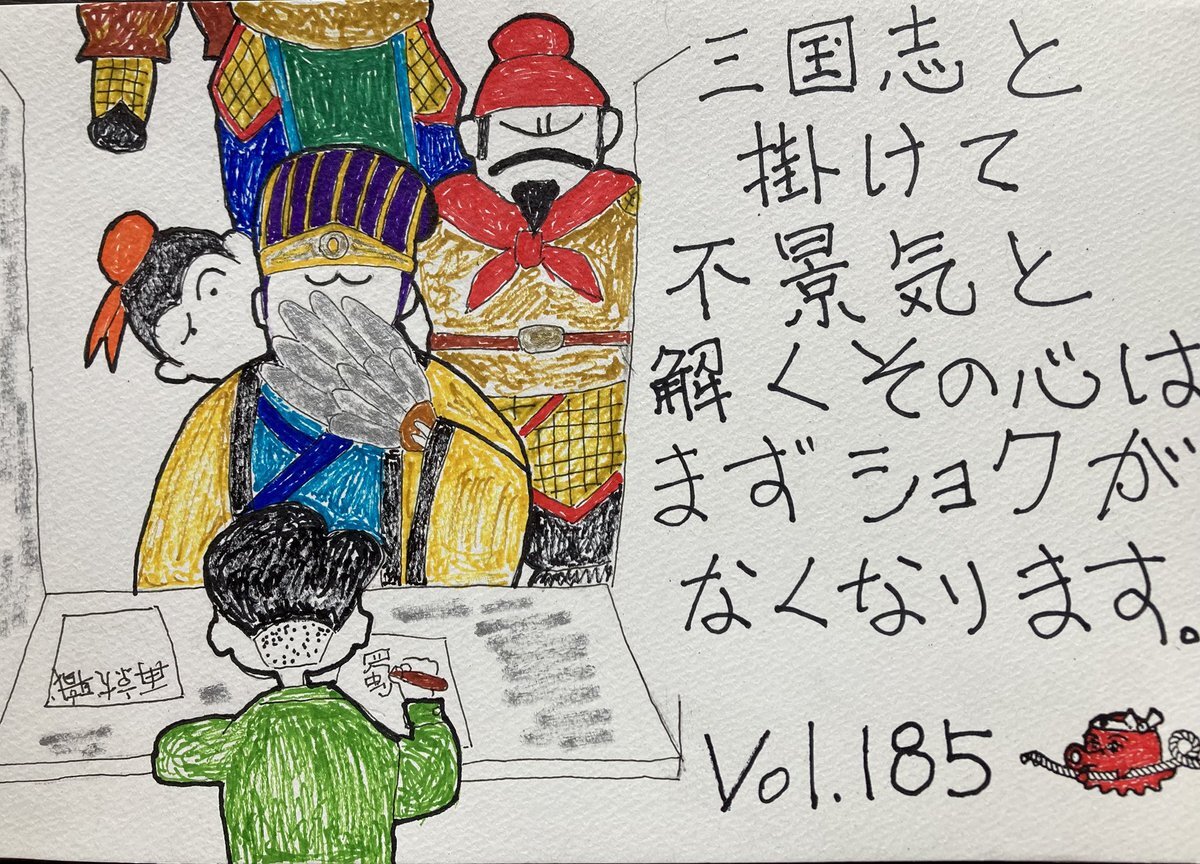 三国志と
掛けて
不景気と
解くその心は
まずショクが
なくなります。
Vol.185
再就職
蜀